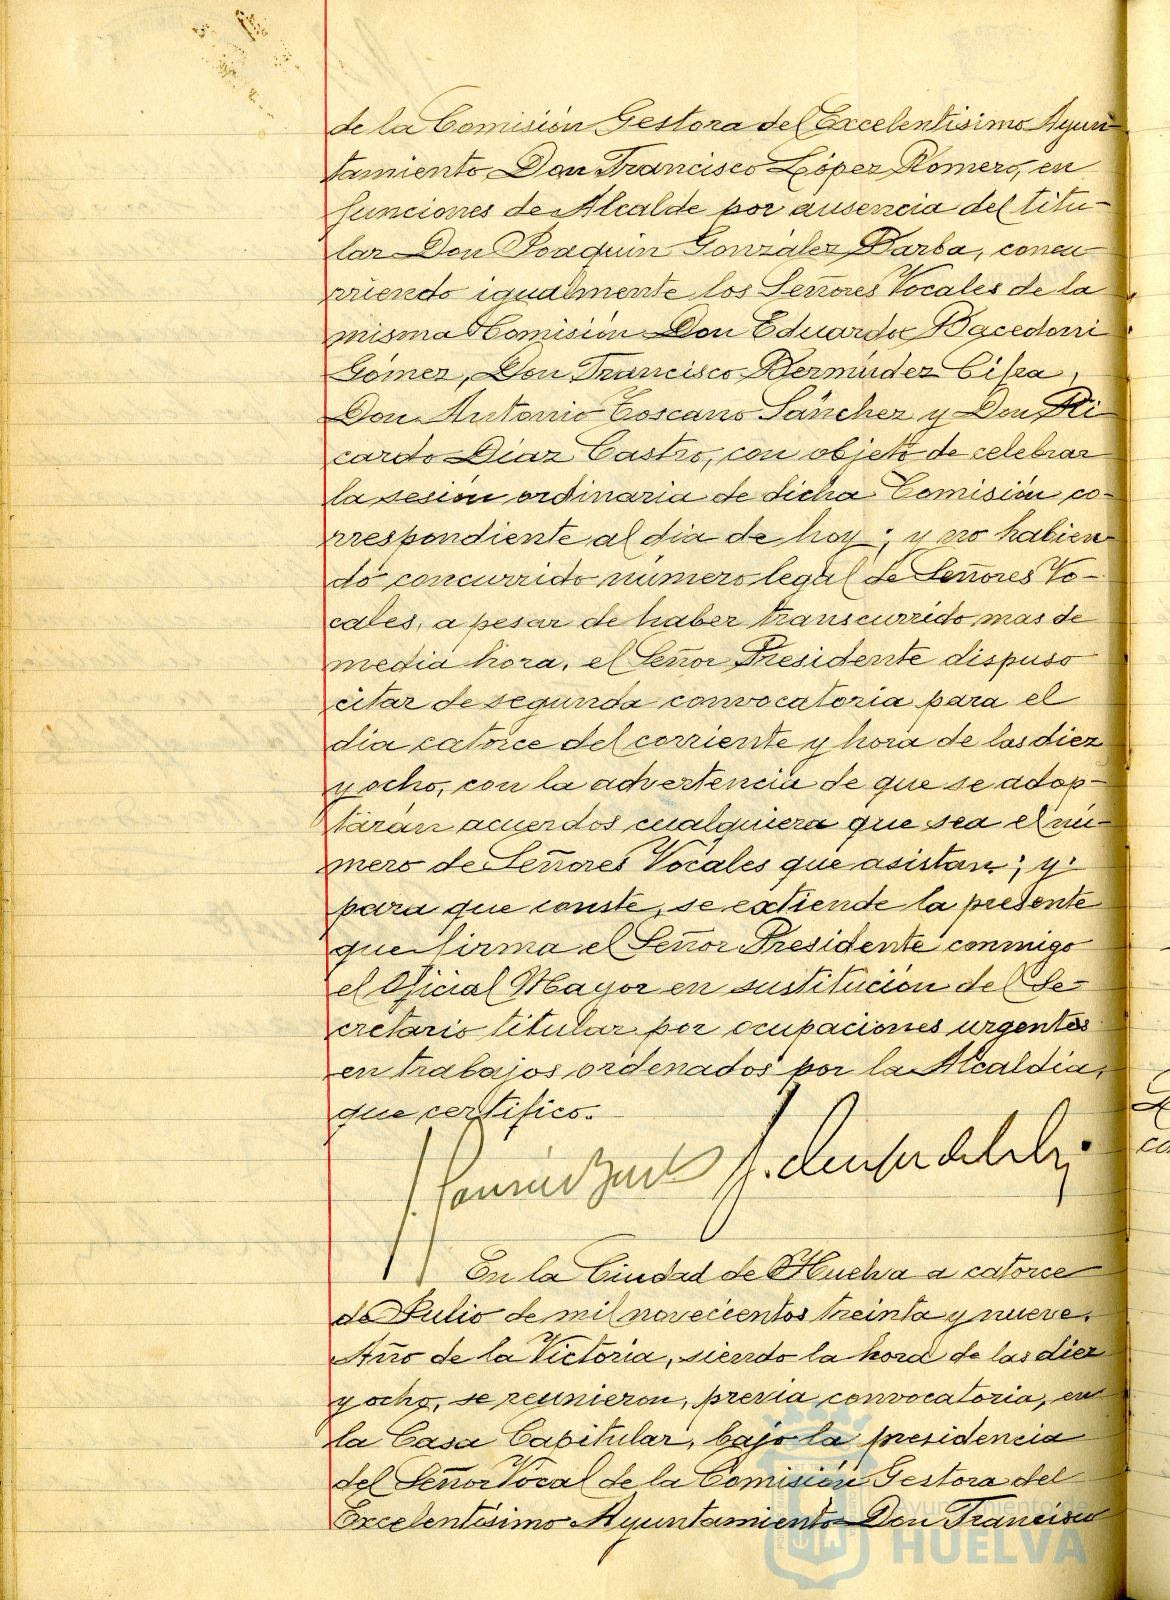 de la Comisión Gestora del Excelentisimo Ayun-
tamiento Don Francisco López Romero, en
funciones de Alcalde por ausencia del titu-
lar Don Joaquin González Barba, concu
rriendo igualmente los Señores Vocales de la
misma Comisión Don Eduardo Bacedoni
Gómez, Don Francisco Bermúdez Cifra,
Don Antonio Toscano Sánchez y Don Ri
cardo Diaz Castro, con objeto de celebrar
la sesión ordinaria de dicha Comisión co-
rrespondiente al dia de hoy; y no habien-
do concurrido número legal de Señores Vo-
cales, a pesar de haber transcurrido mas de
media hora, el Señor Presidente dispuso
citar de segunda convocatoria para el
dia catorce del corriente y hora de las diez
y ocho, con la advertencia de que se adop-
tarán acuerdos cualquiera que sea el nú-
mero de Señores Vocales que asistan; y
para que conste, se extiende la presente
que firma el Señor Presidente conmigo
el Oficial Mayor en sustitución del Se-
cretario titular por ocupaciones urgentes
en trabajos ordenados por la Alcaldia,
que certifico.
En la Ciudad de Huelva a catorce
de Julio de mil novecientos treinta y nueve.
Año de la Victoria, siendo la hora de las diez
y ocho, se reunieron, previa convocatoria, en
la Casa Capitular, bajo la presidencia
del Señor Vocal de la Comisión Gestora del
Excelentísimo Ayuntamiento Don Francisco
Ayuntamiento de
HUELVA